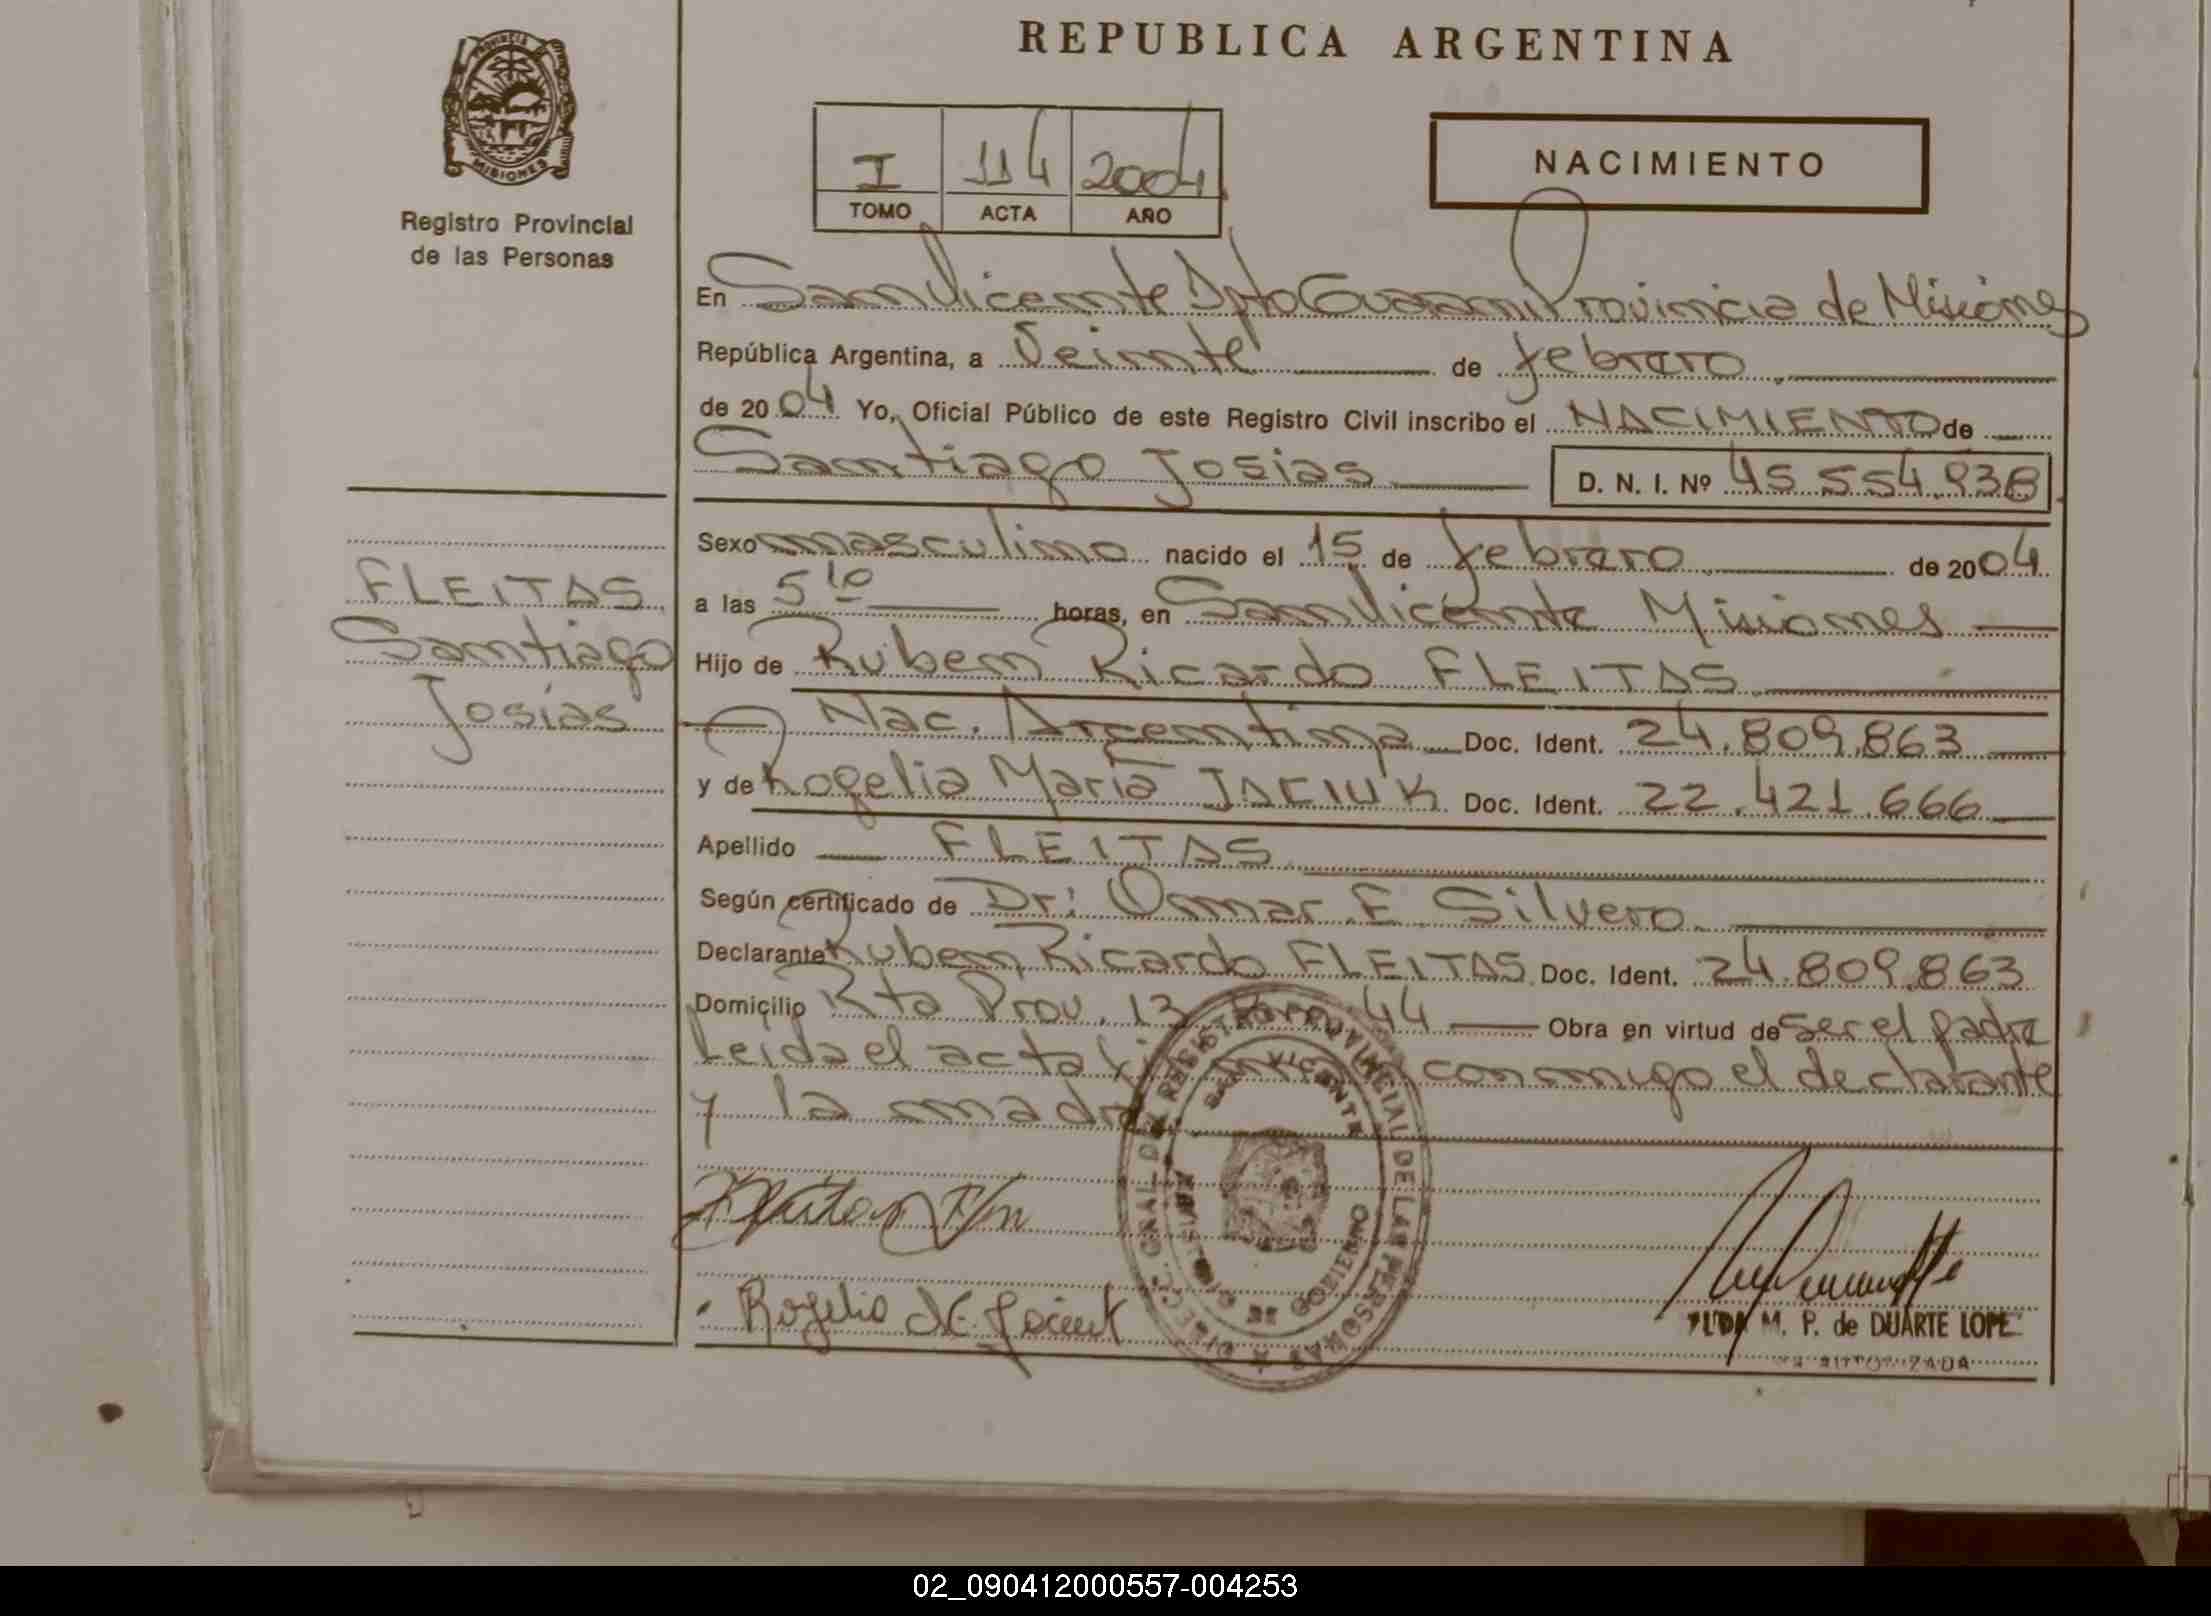 REPUBLICA ARGENTINA
PROVINCIA
MISIONES
Registro Provincial
de las Personas
I 114 2004
TOMO ACTA AÑO
NACIMIENTO
En San Vicente Dpto Guaraní Provincia de Misiones
República Argentina, a Veinte de febrero
de 2004 Yo, Oficial Público de este Registro Civil inscribo el NACIMIENTO de
Santiago Josias D. N. I. Nº 45.554.938
Sexo masculino nacido el 15 de febrero de 2004
a las 5 10 horas, en San Vicente Misiones
Hijo de Ruben Ricardo FLEITAS
Nac. Argentina Doc. Ident. 24.809.863
y de Rogelia María JACIUK Doc. Ident. 22.421.666
Apellido FLEITAS
Según certificado de Dr: Omar E Silvero
Declarante Ruben Ricardo FLEITAS Doc. Ident. 24.809.863
Domicilio Rta Prov. 13 44 Obra en virtud de ser el padre
Leida el acta conmigo el declarante
y la madre
FLEITAS
Santiago
Josias
REGISTRO PROVINCIAL DE LAS PERSONAS
SAN VICENTE
MINISTERIO DE GOBIERNO
Fleitas
Rogelia M. Jaciuk
M. P. de DUARTE LOPE
AUTORIZADA
02_090412000557-004253